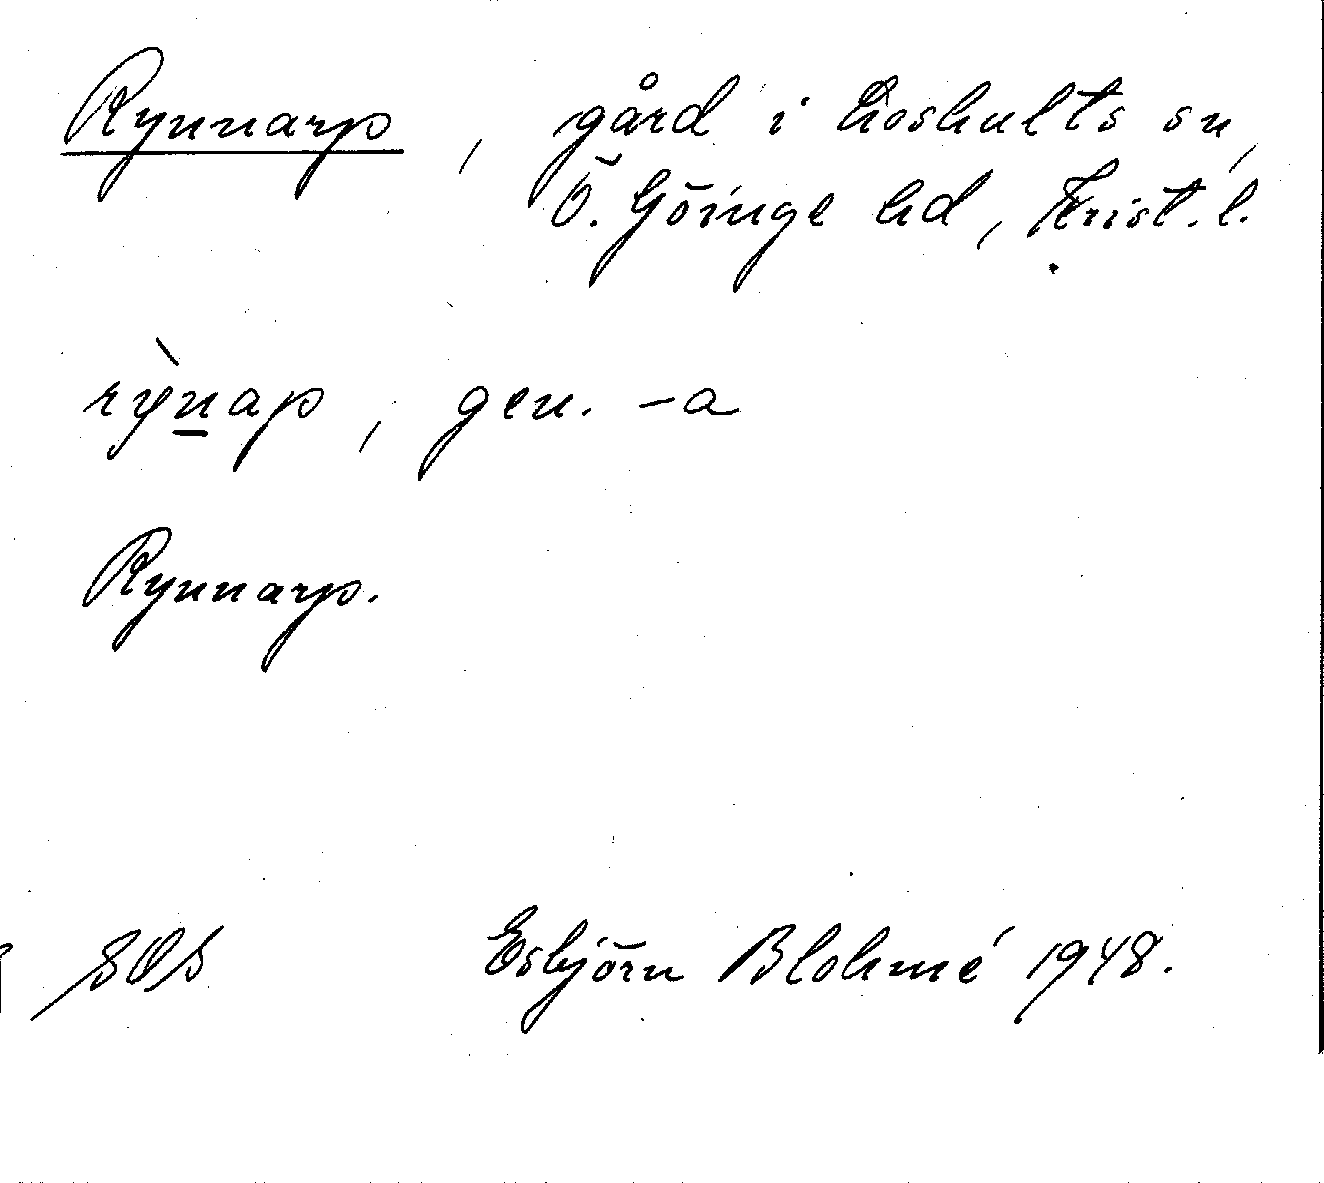 Rynnarp, gård i Loshults sn,
Ö. Göinge hd, Krist. l.
rỳnap, gen. -a
Rynnarp.
SOS Esbjörn Blohmé 1948.